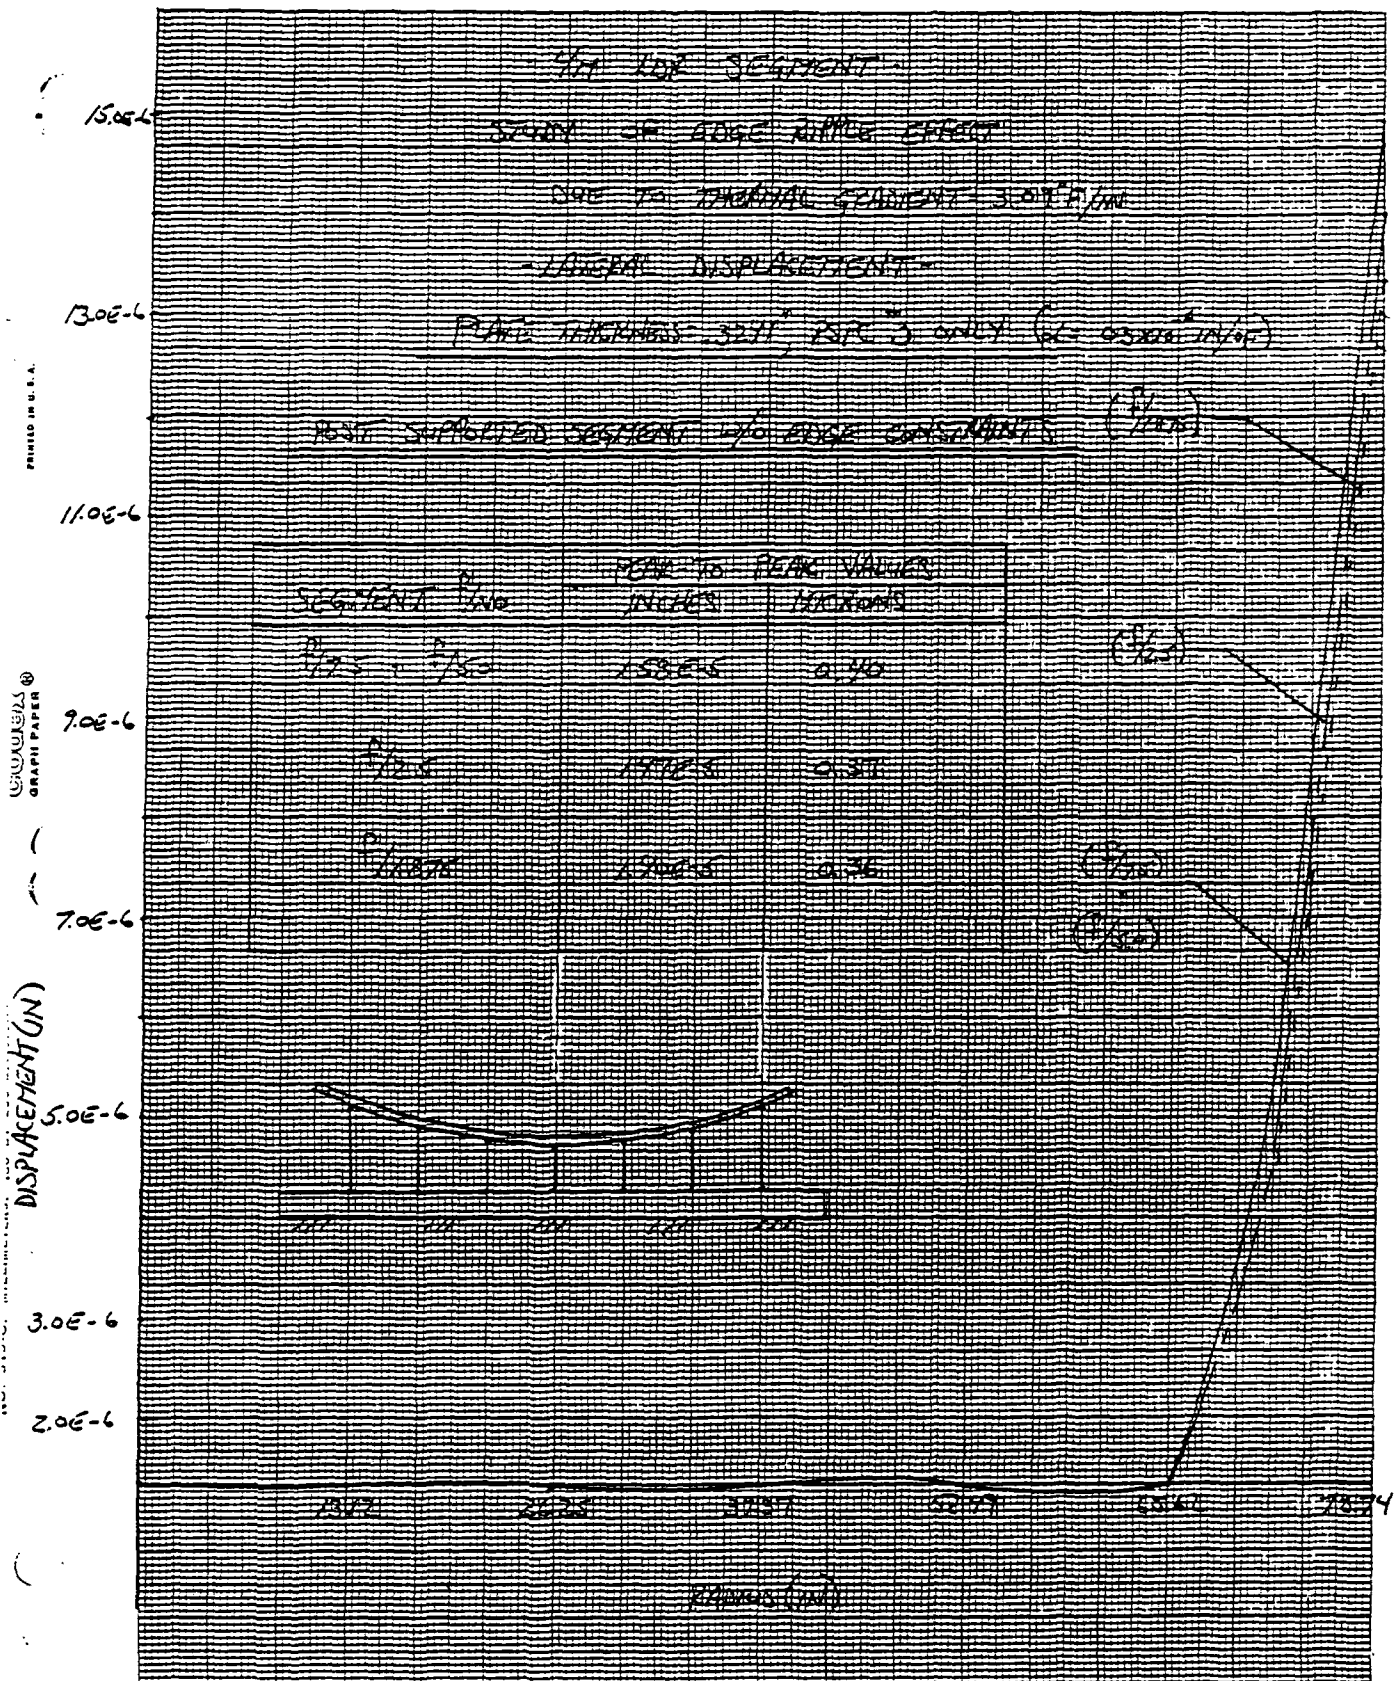 - 4M LDR SEGMENT -
STUDY OF EDGE RIPPLE EFFECT
DUE TO THERMAL GRADIENT = 3.09°F/IN
- LATERAL DISPLACEMENT -
PLATE THICKNESS = .3241", ONLY
POST SUPPORTED SEGMENT W/O EDGE CONSTRAINTS
PEAK-TO-PEAK VALUES
SEGMENT f/NO INCHES MICRONS
f/7.5 f/5.0 1.58E-5 0.40
f/2.5 1.47E-5 0.37
f/1.875 1.40E-5 0.36
(f/1.875)
(f/2.5)
(f/7.5)
(f/5.0)
15.0E-6
13.0E-6
11.0E-6
9.0E-6
7.0E-6
5.0E-6
3.0E-6
2.0E-6
DISPLACEMENT (IN)
13.12 26.25 39.37 52.49 65.62 78.74
RADIUS (IN)
PRINTED IN U.S.A.
GRAPH PAPER